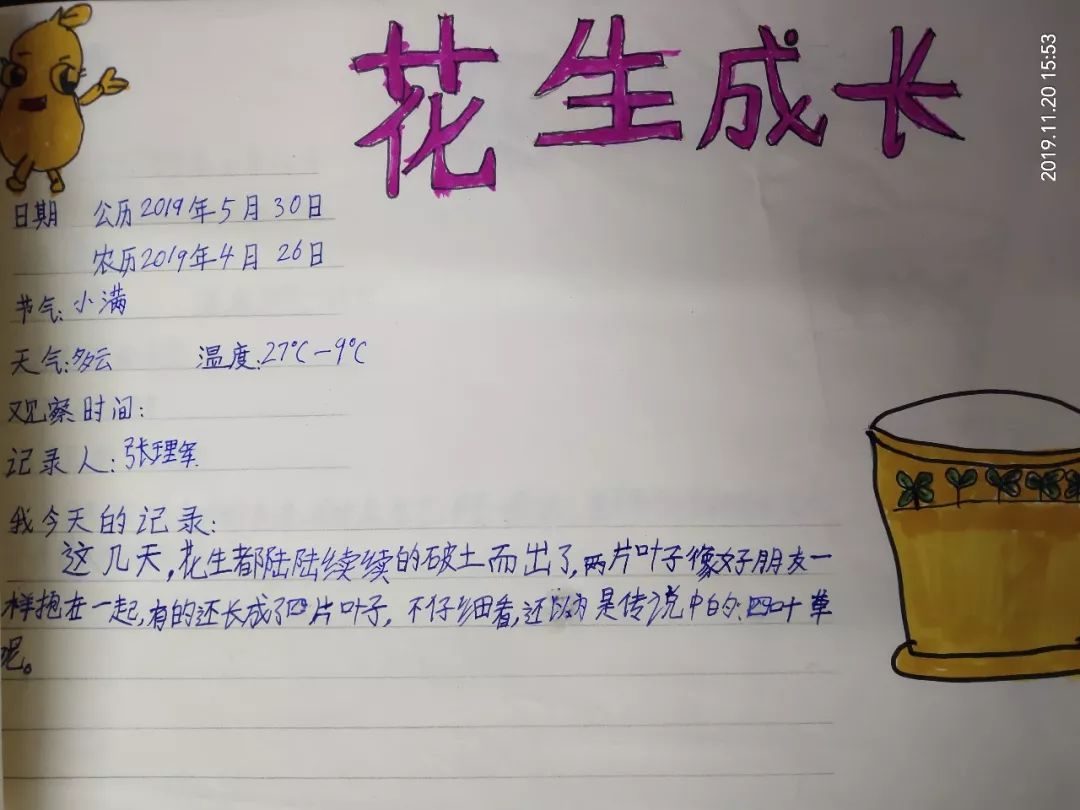 花生成长
2019.11.20 15:53
日期 公历2019年5月30日
农历2019年4月26日
节气:小满
天气:多云 温度:27℃-9℃
观察时间:
记录人:张理军
我今天的记录:
这几天,花生都陆陆续续的破土而出了,两片叶子像好朋友一
样抱在一起,有的还长成了四片叶子,不仔细看,还以为是传说中的:四叶草
呢。